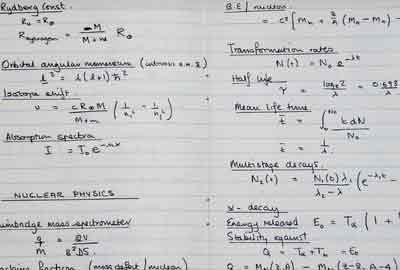 Rydberg Const.
R₀ = R∞
R_hydrogen = M / (M + m) R∞
Orbital angular momentum
l² = l(l+1)ħ²
Isotope shift
ν = cR∞M / (M+m) (1/n₁² - 1/n₂²)
Absorption spectra
I = I₀e
NUCLEAR PHYSICS
mass spectrometer
q/m =
fraction (mass defect / nucleon)
B.E / nucleon
= c² [M_n + Z/A (M_H - M_n) -
Transformation rates
N(t) = N₀ e^-λt
Half life
τ = logₑ2 / λ = 0.693
Mean life time
t̄ = ∫ t dN / N₀
t̄ = 1/λ
Multistage decays
N₂(t) = N₁(0) λ₁ / (λ₂ - λ) (e^-λ₁t -
α - decay
Energy released E₀ = T_α (1 +
Stability against
Q = T_α + T_b = E₀
Q = M_n(Z,A) - M_n(Z-2, A-4)